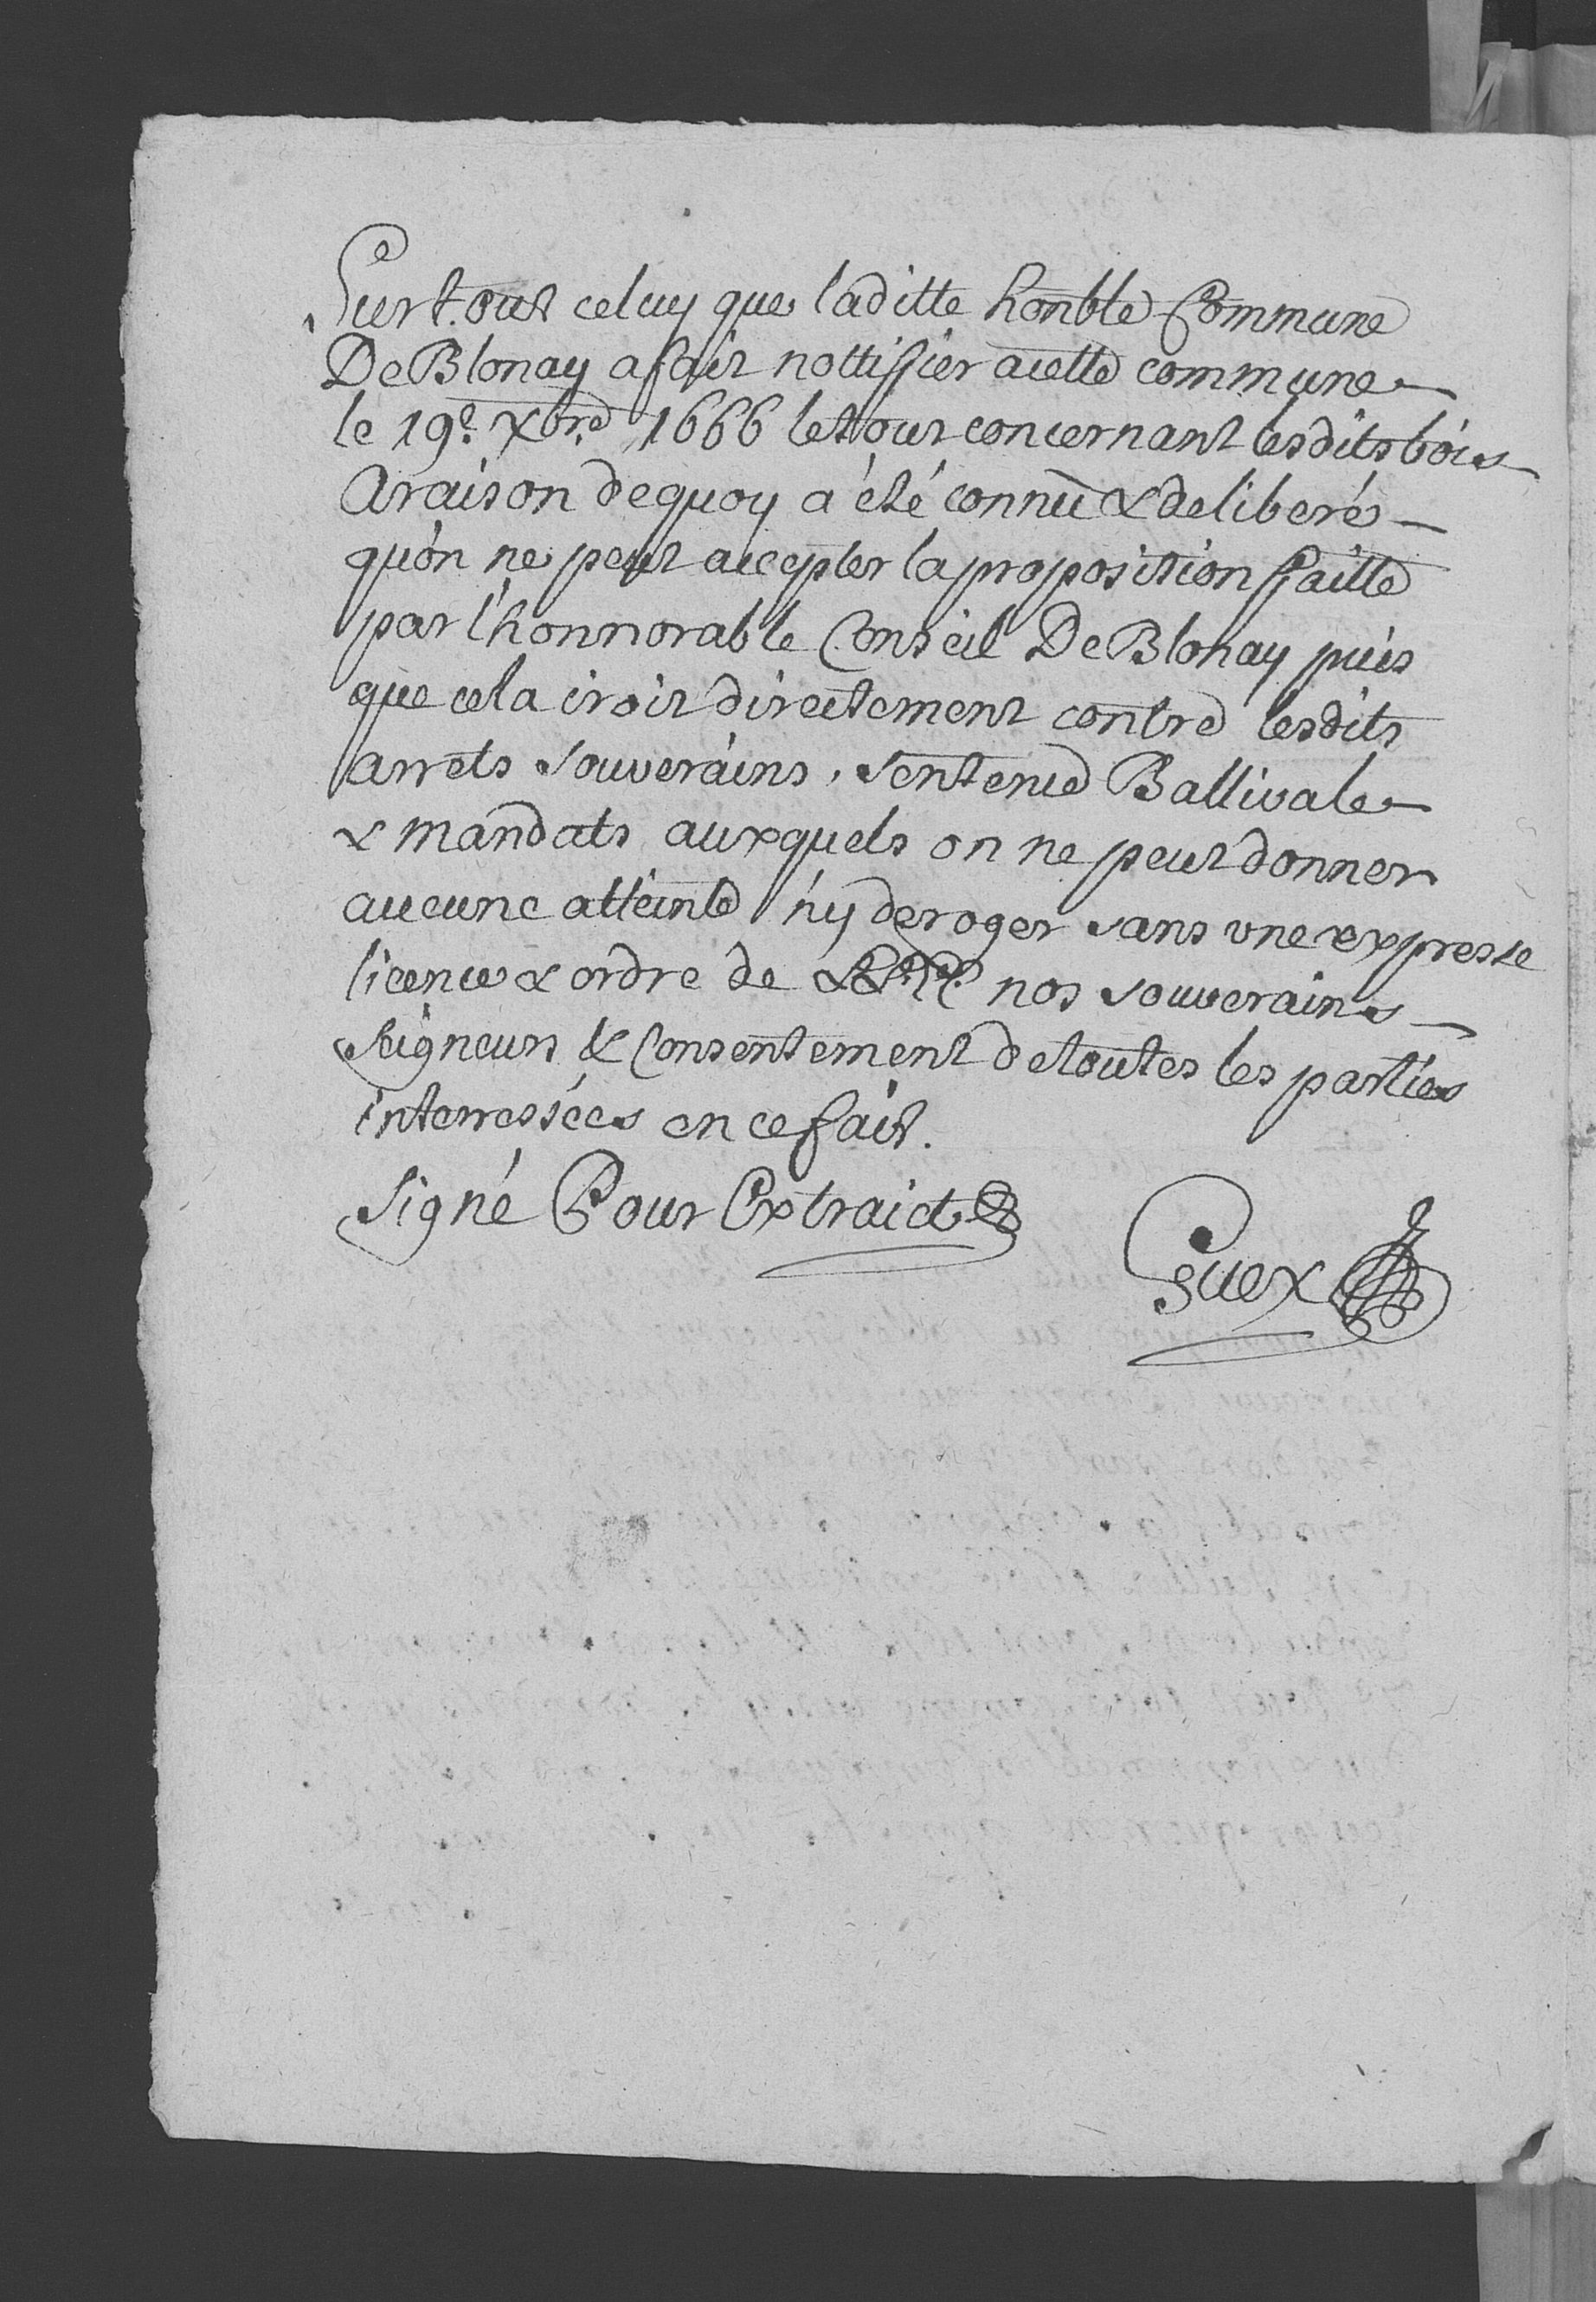 Surtout celuy que laditte honble Commune
De Blonay a fait nottiffier a cette commune
le 19e. Xbre 1666 le tout concernant lesdits bois
A raison de quoy a été connû & deliberé
qu'on ne peut accepter la proposition faitte
par l'honnorable Conseil De Blonay puis
que cela iroit directement contre lesdits
arrets souverains, sentence Ballivale
& mandats auxquels on ne peut donner
aucune atteinte n'y deroger sans une expresse
licence & ordre de LL. EE. nos souverains
Seigneurs & Consentement de toutes les parties
interressées en ce fait.
Signé Pour Extraict
Guex